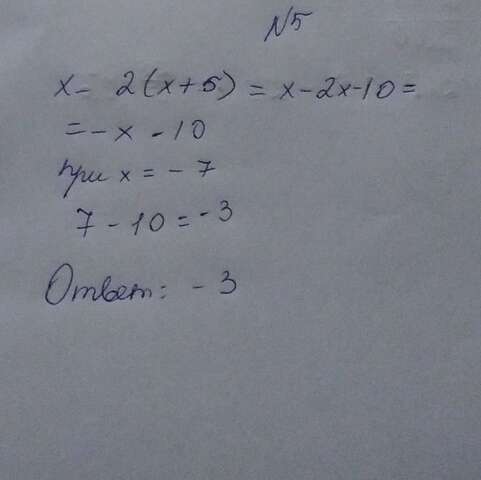 N5
x - 2(x+5) = x-2x-10=
= -x - 10
при x = -7
7 - 10 = -3
Ответ: -3